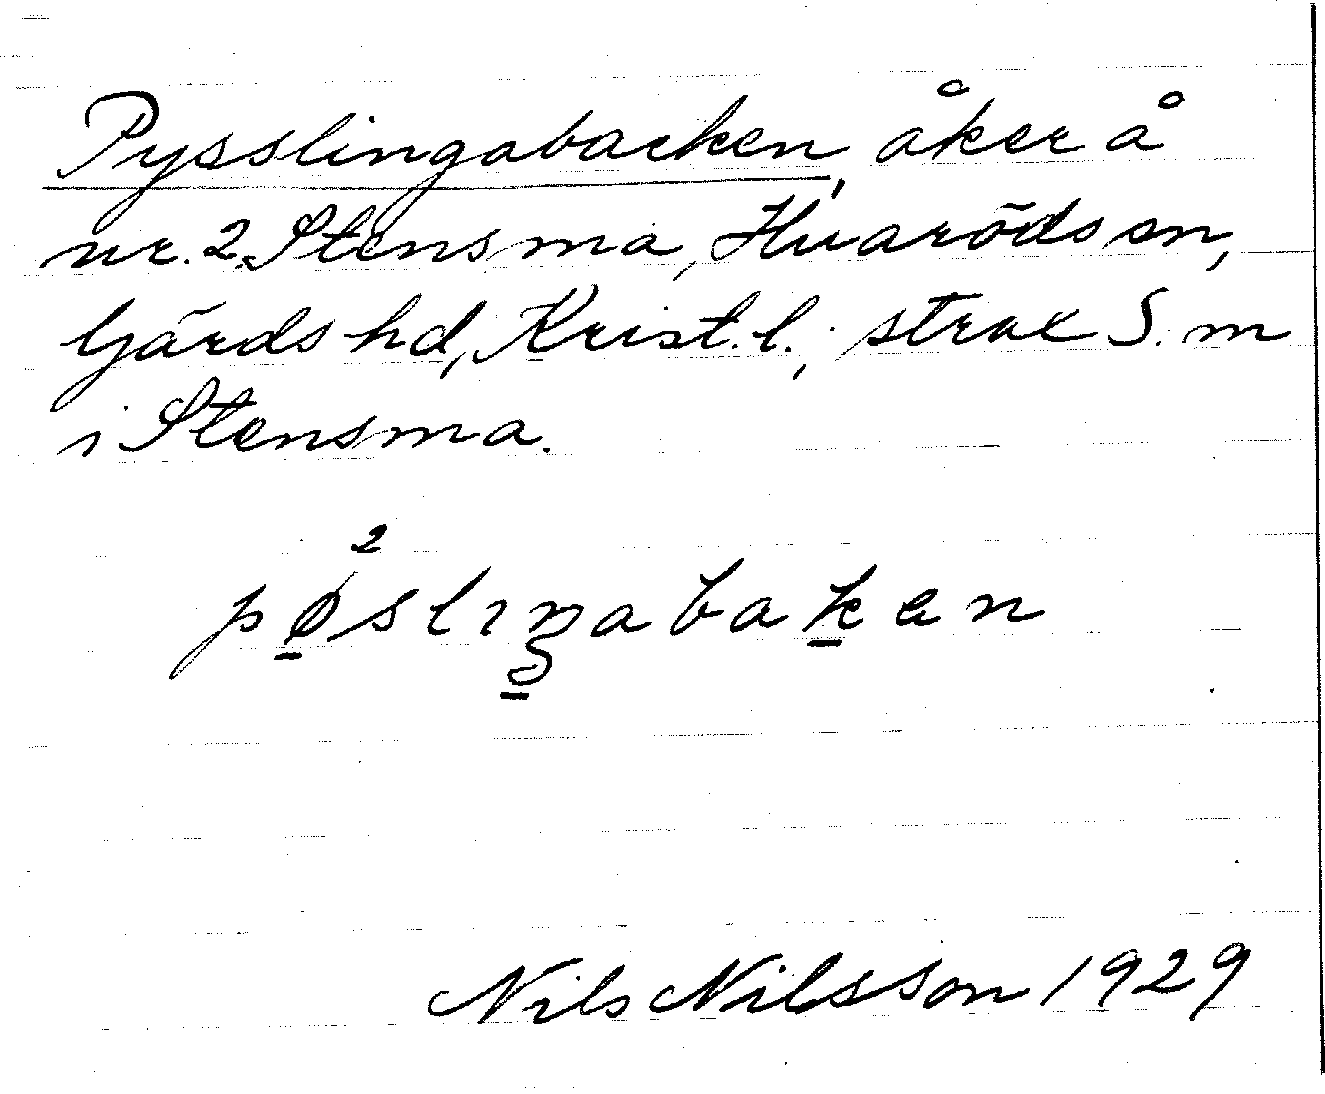 Pysslingabacken, åker å
nr. 2 Stensma, Huaröds sn,
Gärds hd, Krist. l.; strax S. m
i Stensma.
2
pøslıŋabakan
Nils Nilsson 1929